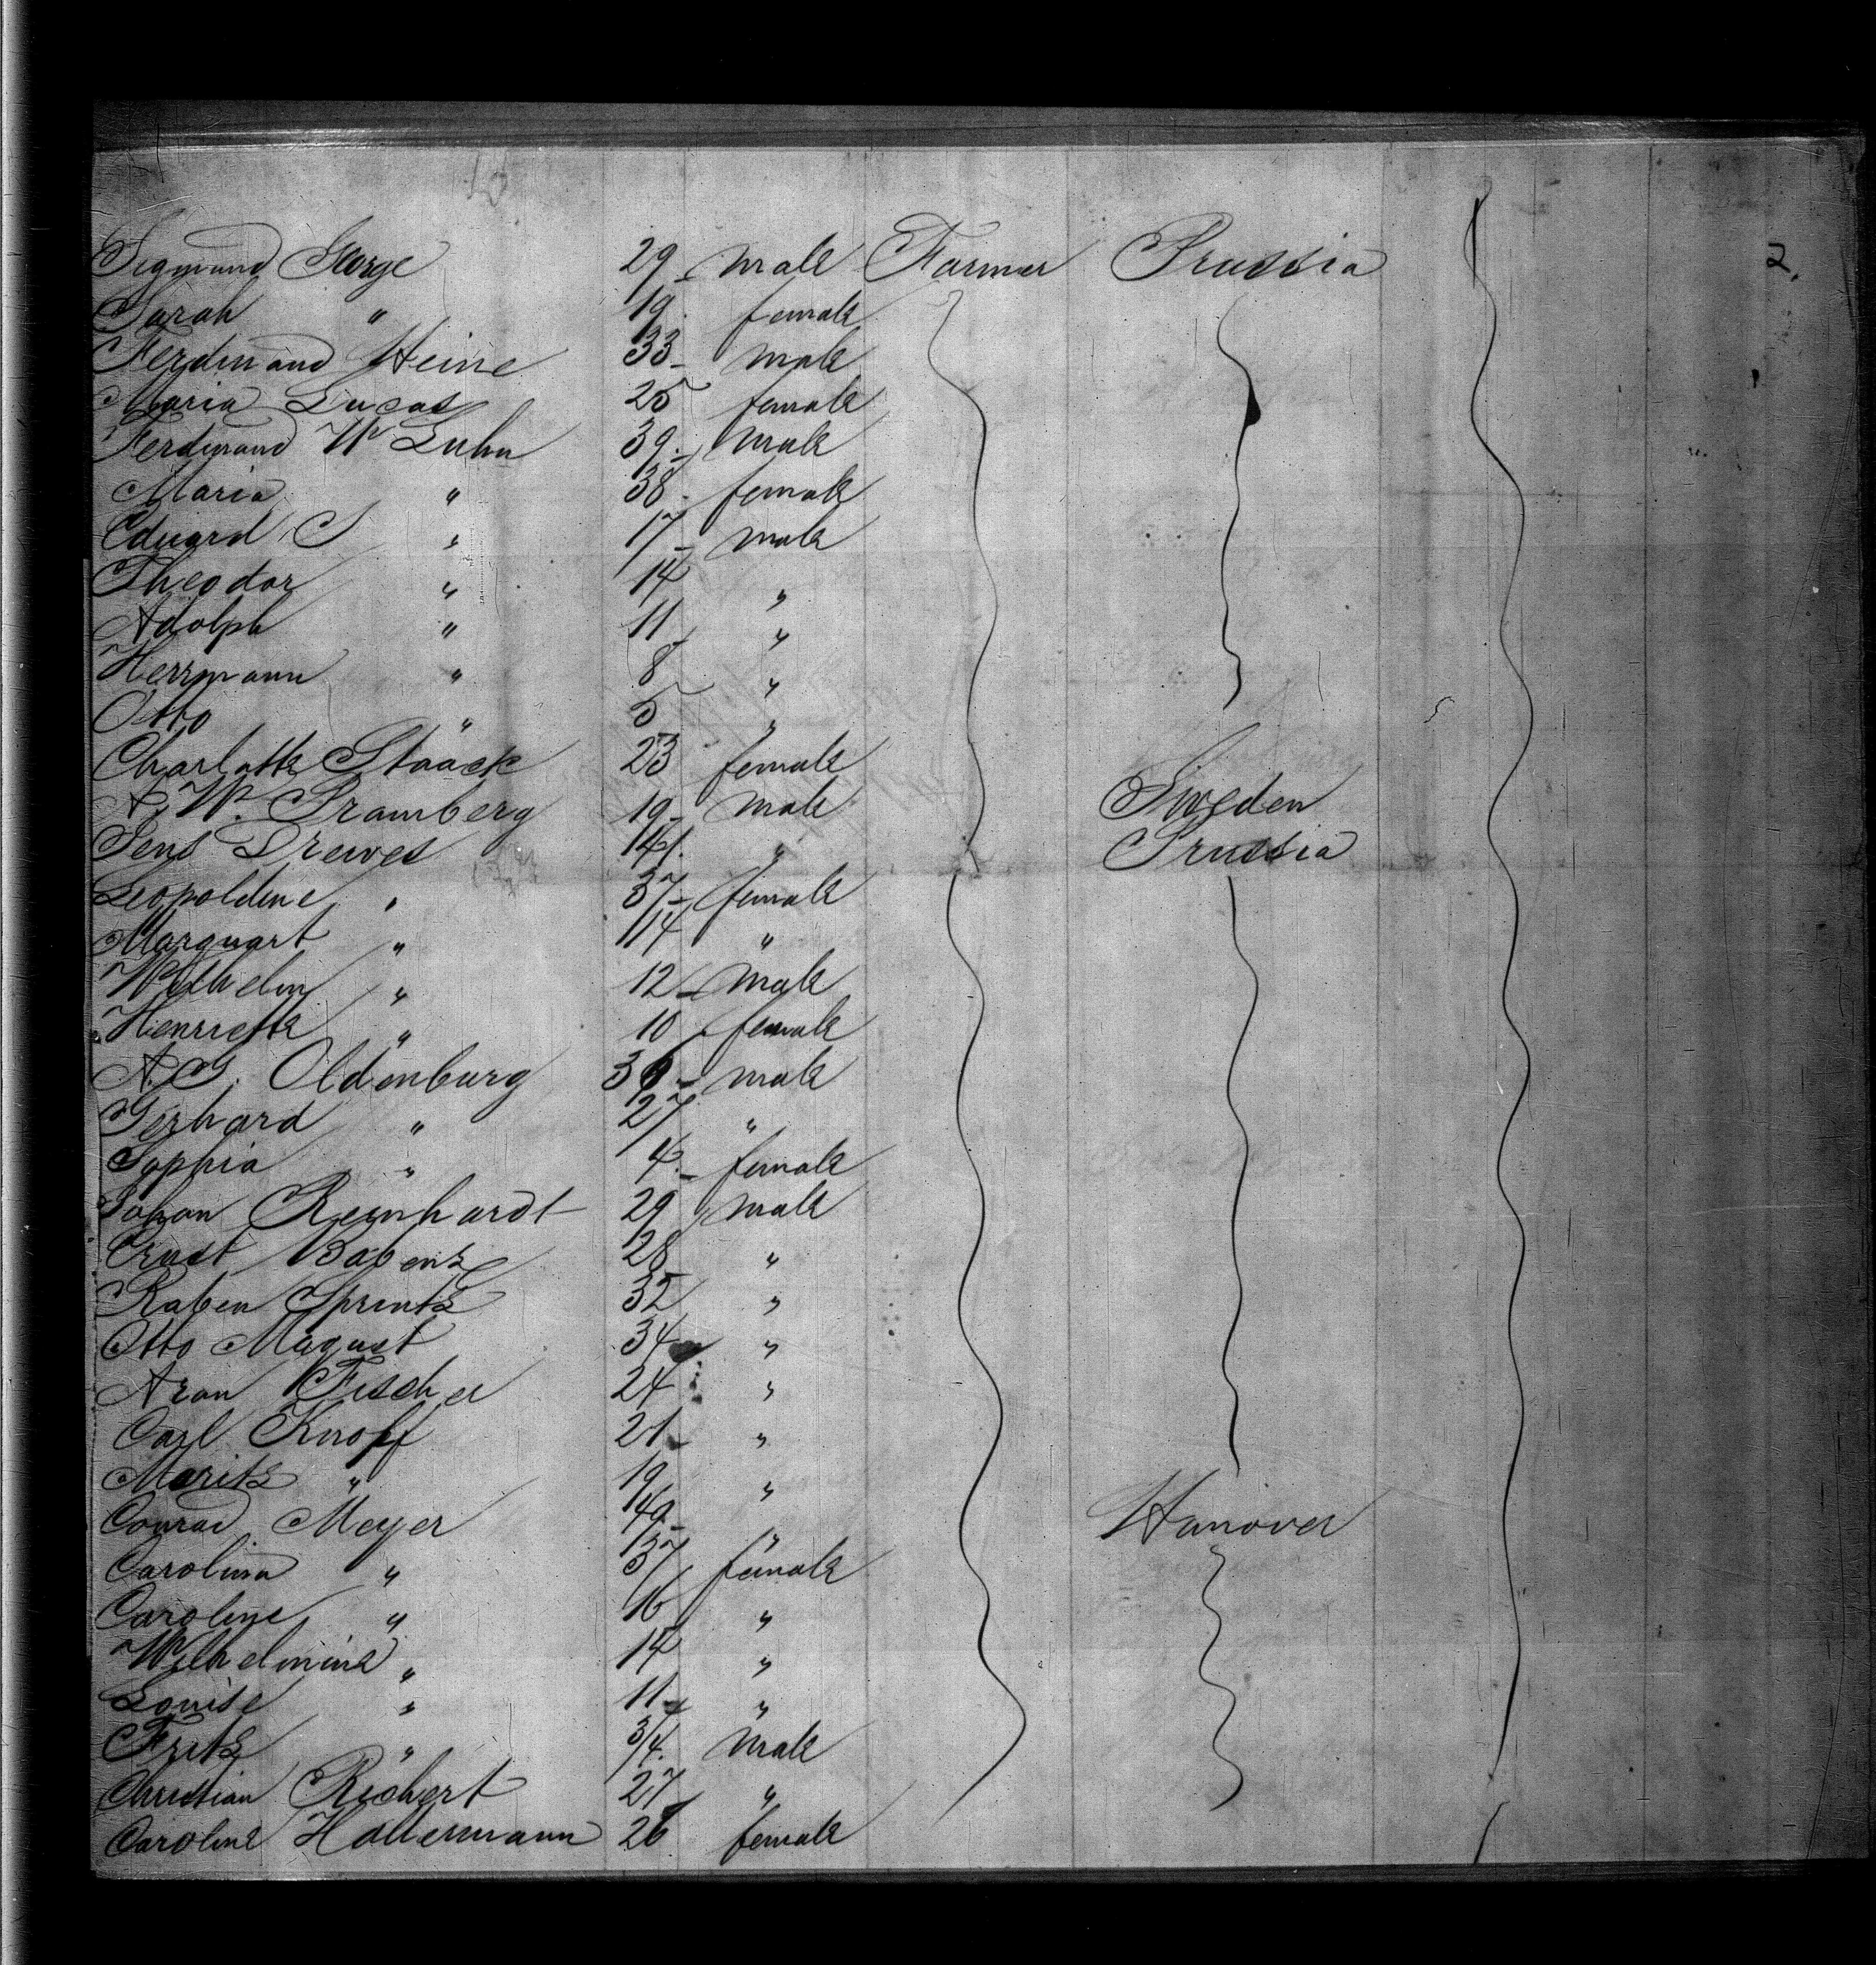 2.
Sigmund George 29 male Farmer Prussia
Sarah " 19 female
Ferdinand Heine 33 male
Maria Lucas 25 female
Ferdinand W Luhn 39 male
Maria " 38 female
Eduard S " 17 male
Theodor " 14 "
Adolph " 11 "
Herrmann " 8 "
Otto " 5 "
Charlotte Staack 23 female
A. W. Bramberg 19 male Sweden
Jens Drewes 41 " Prussia
Leopoldine " 37 female
Marquart " 14 "
Wilhelm " 12 male
Henriette " 10 female
A. G. Oldenburg 36 male
Gerhard " 27 "
Sophia " 4 female
Johan Reinhardt 29 male
Ernst 28 "
Raben 32 "
Otto Magust 34 "
Aron Fischer 24 "
Carl Knopf 21 "
Moritz " 19 "
Conrad Meyer 49 " Hanover
Carolina " 37 female
Caroline " 16 "
Wilhelmine " 14 "
Louise " 11 "
Fritz " 3/4 male
Christian Richert 27 "
Caroline Hallermann 26 female